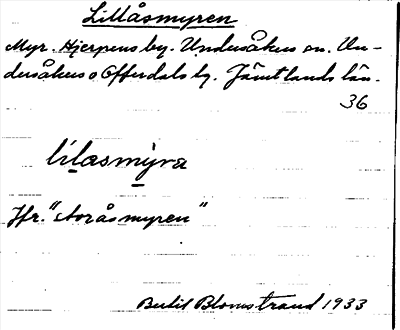 Lillåsmyren
Myr. Hjerpens by. Undersåkers sn. Un-
dersåkers o Offerdals tg. Jämtlands län.
36
lílasmỳra
Jfr. "Storåsmyren"
Bertil Blomstrand 1933